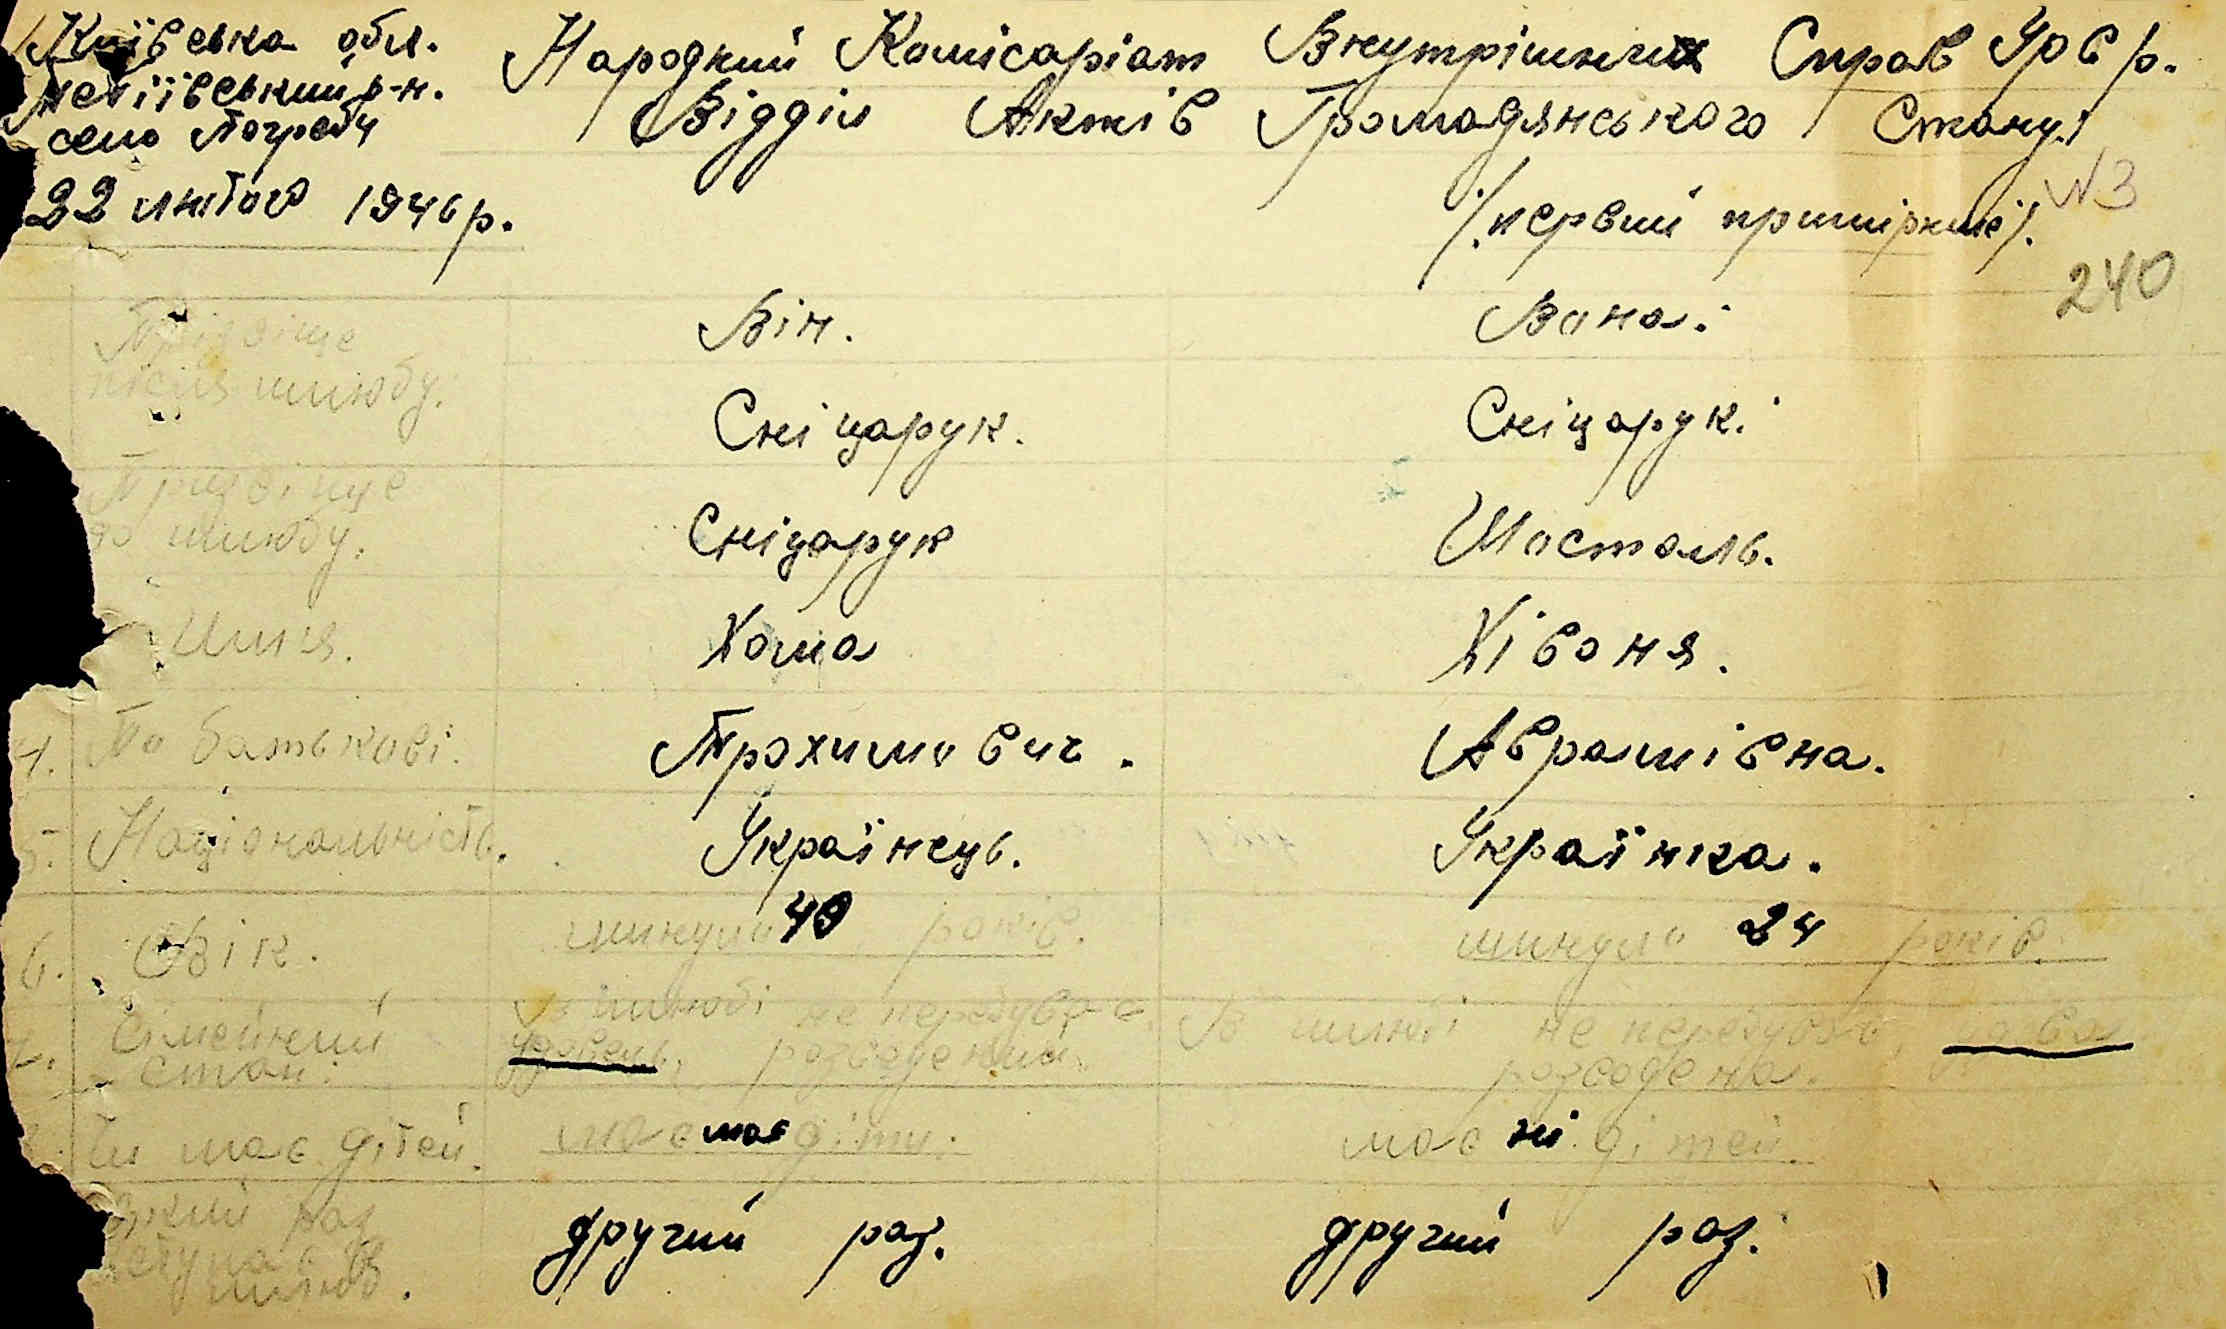 Київська обл.
Тетіївський р-н.
село Погреби
22 лютого 1946 р.
Народний Комісаріат Внутрішних Справ УРСР.
Відділ Актів Громадянського Стану.
/первий примірник/.
N3
240
Він. Вона.
Прізвіще
після шлюбу. Сніцарук. Сніцарук.
Прізвіще
до шлюбу. Сніцарук Шосталь.
Имья. Хома Хівоня.
4. По батькові. Трохимович. Аврамівна.
5. Національність. Українець. Українка.
6. Вік. минуло 40 років. минуло 24 років.
7. Сімейний
стан. В шлюбі не перебував удовець, розведений. В шлюбі не перебувала, вдова
розведена.
Чи має дітей. має має діти. має ні дітей.
який раз
вступає в
шлюб. другий раз. другий раз.